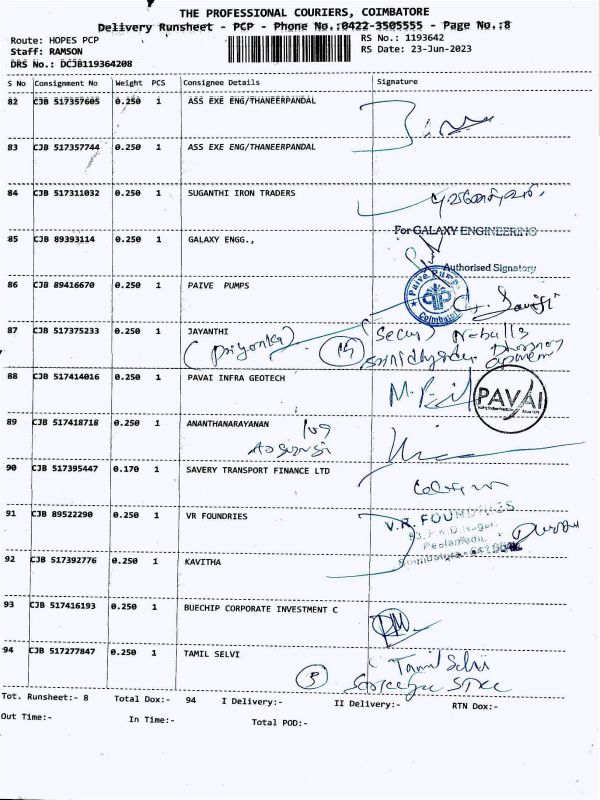 THE PROFESSIONAL COURIERS, COIMBATORE
Delivery Runsheet - PCP - Phone No.:0422-3505555 - Page No.:8
Route: HOPES PCP
RS No.: 1193642
Staff: RAMSON
RS Date: 23-Jun-2023
DRS No.: DCJB119364208
S No Consignment No Weight PCS Consignee Details Signature
82 CJB 517357605 0.250 1 ASS EXE ENG/THANEERPANDAL
83 CJB 517357744 0.250 1 ASS EXE ENG/THANEERPANDAL
84 CJB 517311032 0.250 1 SUGANTHI IRON TRADERS
For GALAXY ENGINEERING
85 CJB 89393114 0.250 1 GALAXY ENGG.,
Authorised Signatory
86 CJB 89416670 0.250 1 PAIVE PUMPS
Paive Pumps
Coimbatore
87 CJB 517375233 0.250 1 JAYANTHI
(Priyonka)
88 CJB 517414016 0.250 1 PAVAI INFRA GEOTECH
PAVAI
89 CJB 517418718 0.250 1 ANANTHANARAYANAN
90 CJB 517395447 0.170 1 SAVERY TRANSPORT FINANCE LTD
91 CJB 89522290 0.250 1 VR FOUNDRIES
V.R. FOUNDRIES
92 CJB 517392776 0.250 1 KAVITHA
93 CJB 517416193 0.250 1 BUECHIP CORPORATE INVESTMENT C
94 CJB 517277847 0.250 1 TAMIL SELVI
Tamil Selvi
Tot. Runsheet:- 8 Total Dox:- 94 I Delivery:- II Delivery:- RTN Dox:-
Out Time:- In Time:- Total POD:-